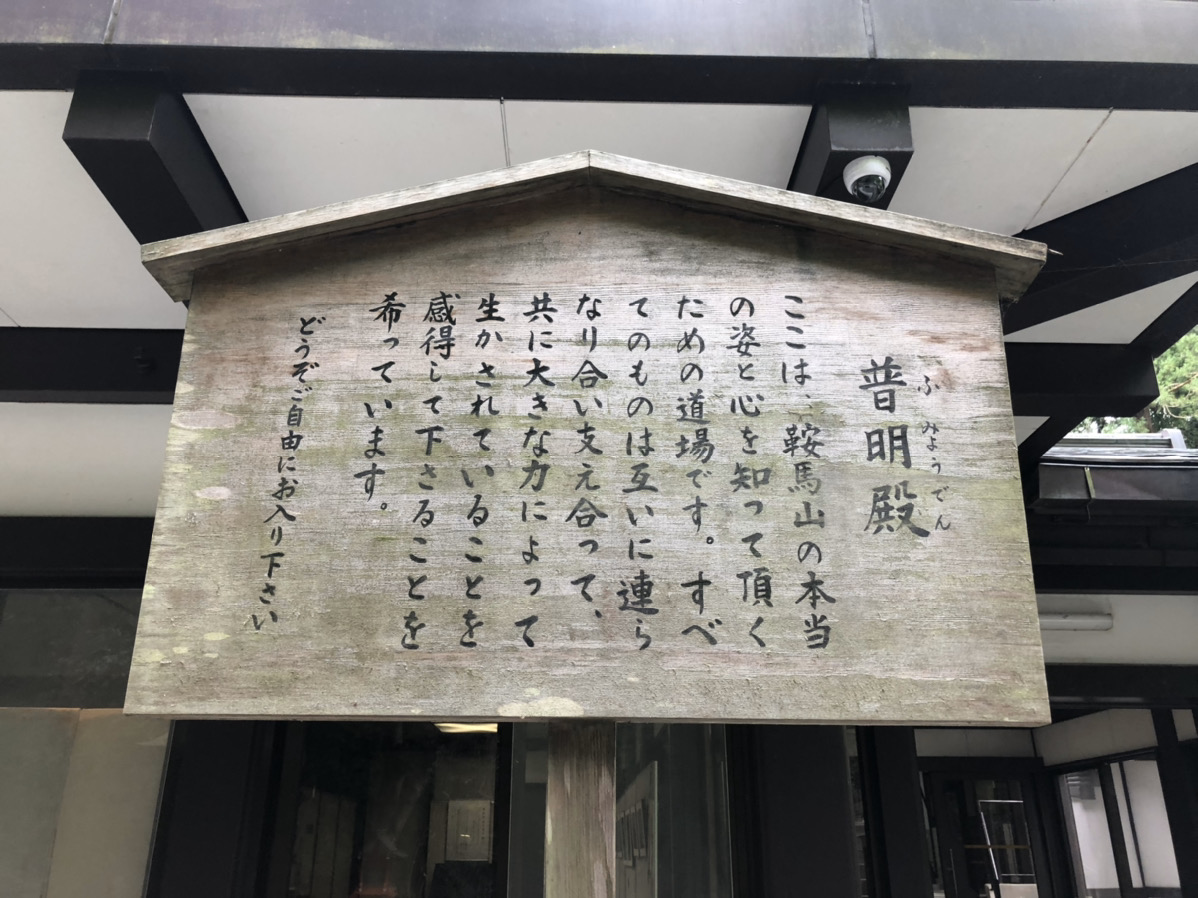 普明殿
ふみょうでん
ここは、鞍馬山の本当
の姿と心を知って頂く
ための道場です。すべ
てのものは互いに連ら
なり合い支え合って、
共に大きな力によって
生かされていることを
感得して下さることを
希っています。
どうぞご自由にお入り下さい